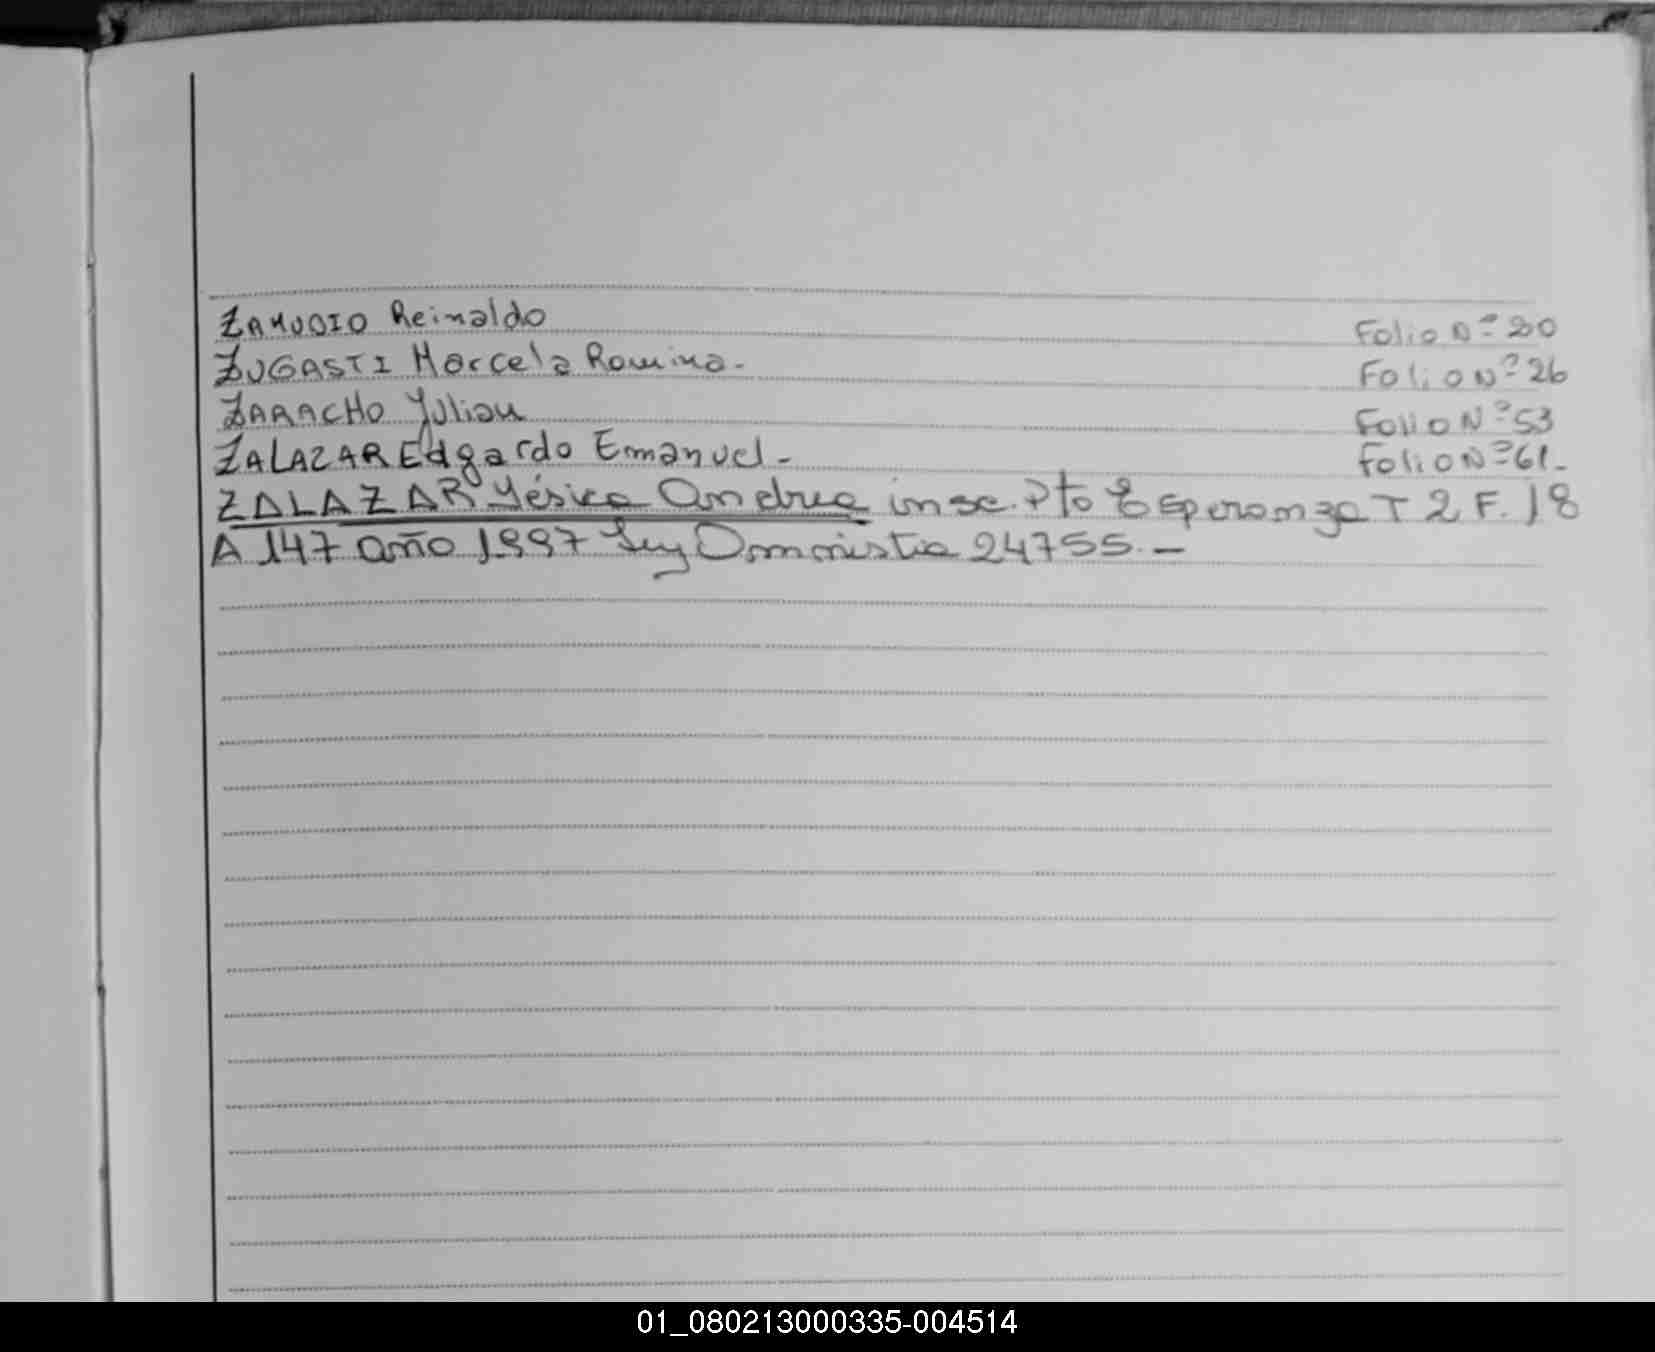 ZAMUDIO Reinaldo Folio Nº 20
ZUGASTI Marcela Romina.- Folio Nº 26
ZARACHO Julian Folio Nº 53
ZALAZAR Edgardo Emanuel.- Folio Nº 61.-
ZALAZAR Yésica Andrea insc. Pto Esperanza T 2 F. 18
A 147 año 1997 Ley Amnistia 24755.-
01_080213000335-004514